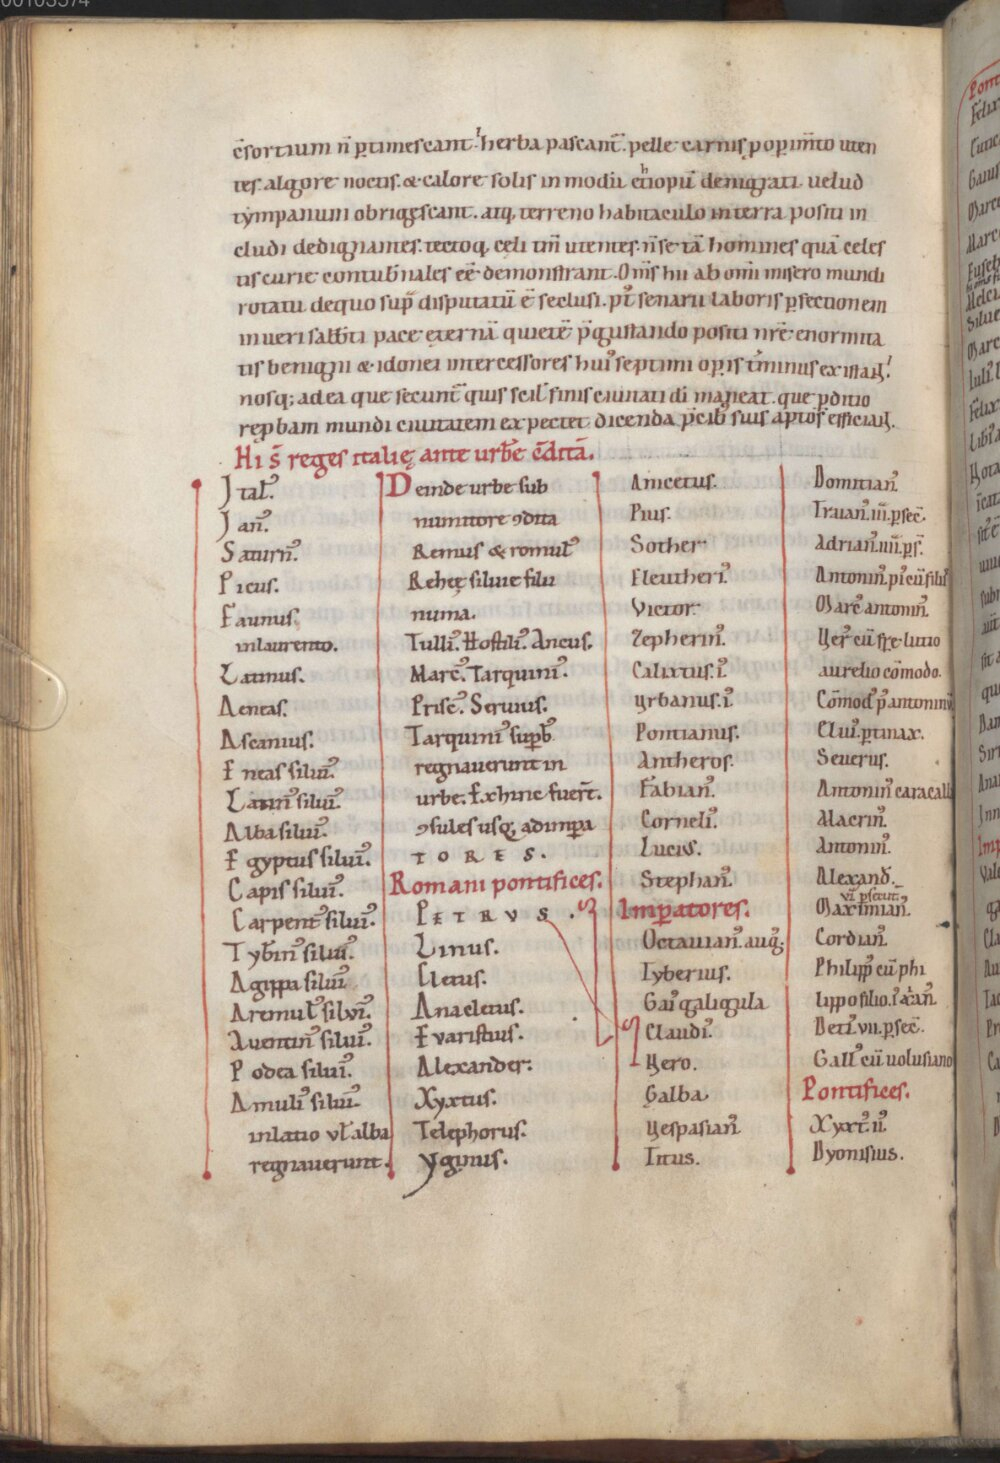 c̄sortium n̄ ꝑtimescant. herba pascant᷑. pelle carnis ꝓ oꝑim̄to uten
tes. algore noctis. & calore solis in modū etiopū denigrati. uelud
tympanum obrigescant. atq; terreno habitaculo in terra positi in
cludi dedignantes. tectoq; celi tm̄ utentes. n̄ se tā homines quā celes
tis curie contub̄nales eē demonstrant. Om̄s hii ab om̄i misero mundi
rotatu de quo sup̄ disputatū ē seclusi. pꝰt senarii laboris ꝑfectionem
in ueri sabb̄ti pace eternā quietē p̄gustando positi nr̄e enormita
tis benigni & idonei intercessores huiꝰ septimi oꝑis t̄minus
nosq; ad ea que secunt᷑ quis scil finis ciuitati di maneat. que ꝑditio
rep̄bam mundi ciuitatem expectet dicenda p̄cibꝰ suis aptos
Hi s̄ reges italię ante urbē c̄ditā.
Italꝰ.
Ianꝰ.
Saturnꝰ.
Picus.
Faunus.
in laurento.
Latinus.
Aeneas.
Ascanius.
Eneas siluiꝰ.
Latinꝰ siluiꝰ.
Alba siluiꝰ.
Egyptus siluiꝰ.
Capis siluiꝰ.
Carpentꝰ siluiꝰ.
Tyb̄inꝰ siluiꝰ.
Agippa siluiꝰ
Aremulꝰ siluiꝰ.
Auentinꝰ siluiꝰ.
Podca siluiꝰ.
Amuliꝰ siluiꝰ.
in latio ul̄ alba
regnauerunt.
Deinde urbe sub
numitore ꝯdita
Remus & romulꝰ
Reheę siluie filii
numa.
Tulliꝰ. Hostiliꝰ. Ancus.
Marcꝰ. Tarquiniꝰ.
Priscꝰ. Seruius.
Tarquiniꝰ suꝑbꝰ
regnauerunt in
urbe. Exhinc fuer̄t.
ꝯsules usq; ad imꝑa
TORES.
Romani pontifices.
PETRVS.
Linus.
Cletus.
Anacletus.
Euaristus.
Alexander.
Xyxtus.
Telephorus.
Yginus.
Anicetus.
Pius.
Sother
Eleutheriꝰ.
Victor.
Zepherinꝰ.
Calixtus. iꝰ.
Urbanus. iꝰ.
Pontianus.
Antheros.
Fabianꝰ.
Corneliꝰ.
Lucius.
Stephanꝰ.
Imꝑatores.
Octauianꝰ. augꝰ;
Tyberius.
Gaiꝰ galigula
Claudiꝰ.
Nero.
Galba
Uespasianꝰ
Titus.
Domitianꝰ
Traianꝰ. iii. ꝑsec̄.
Adrianꝰ. iiii. ꝑs̄.
Antoninꝰ. piꝰ cū filiꝰ
Marcꝰ antoninꝰ.
Uerꝰ cū fr̄e lucio
aurelio cōmodo.
Cōmodꝰ
Eluiꝰ. ꝑtinax.
Seuerus.
Antoninꝰ caracalla
Macrinꝰ.
Antoninꝰ.
Alexand̄.
vi ꝑsecut᷑.
Maximianꝰ.
Gordianꝰ.
Philippꝰ cū phi
lippo filio.
Deciꝰ. vii. ꝑsec̄.
Gallꝰ cū uolusiano
Pontifices.
Xyxtꝰ. iiꝰ.
Dyonisius.